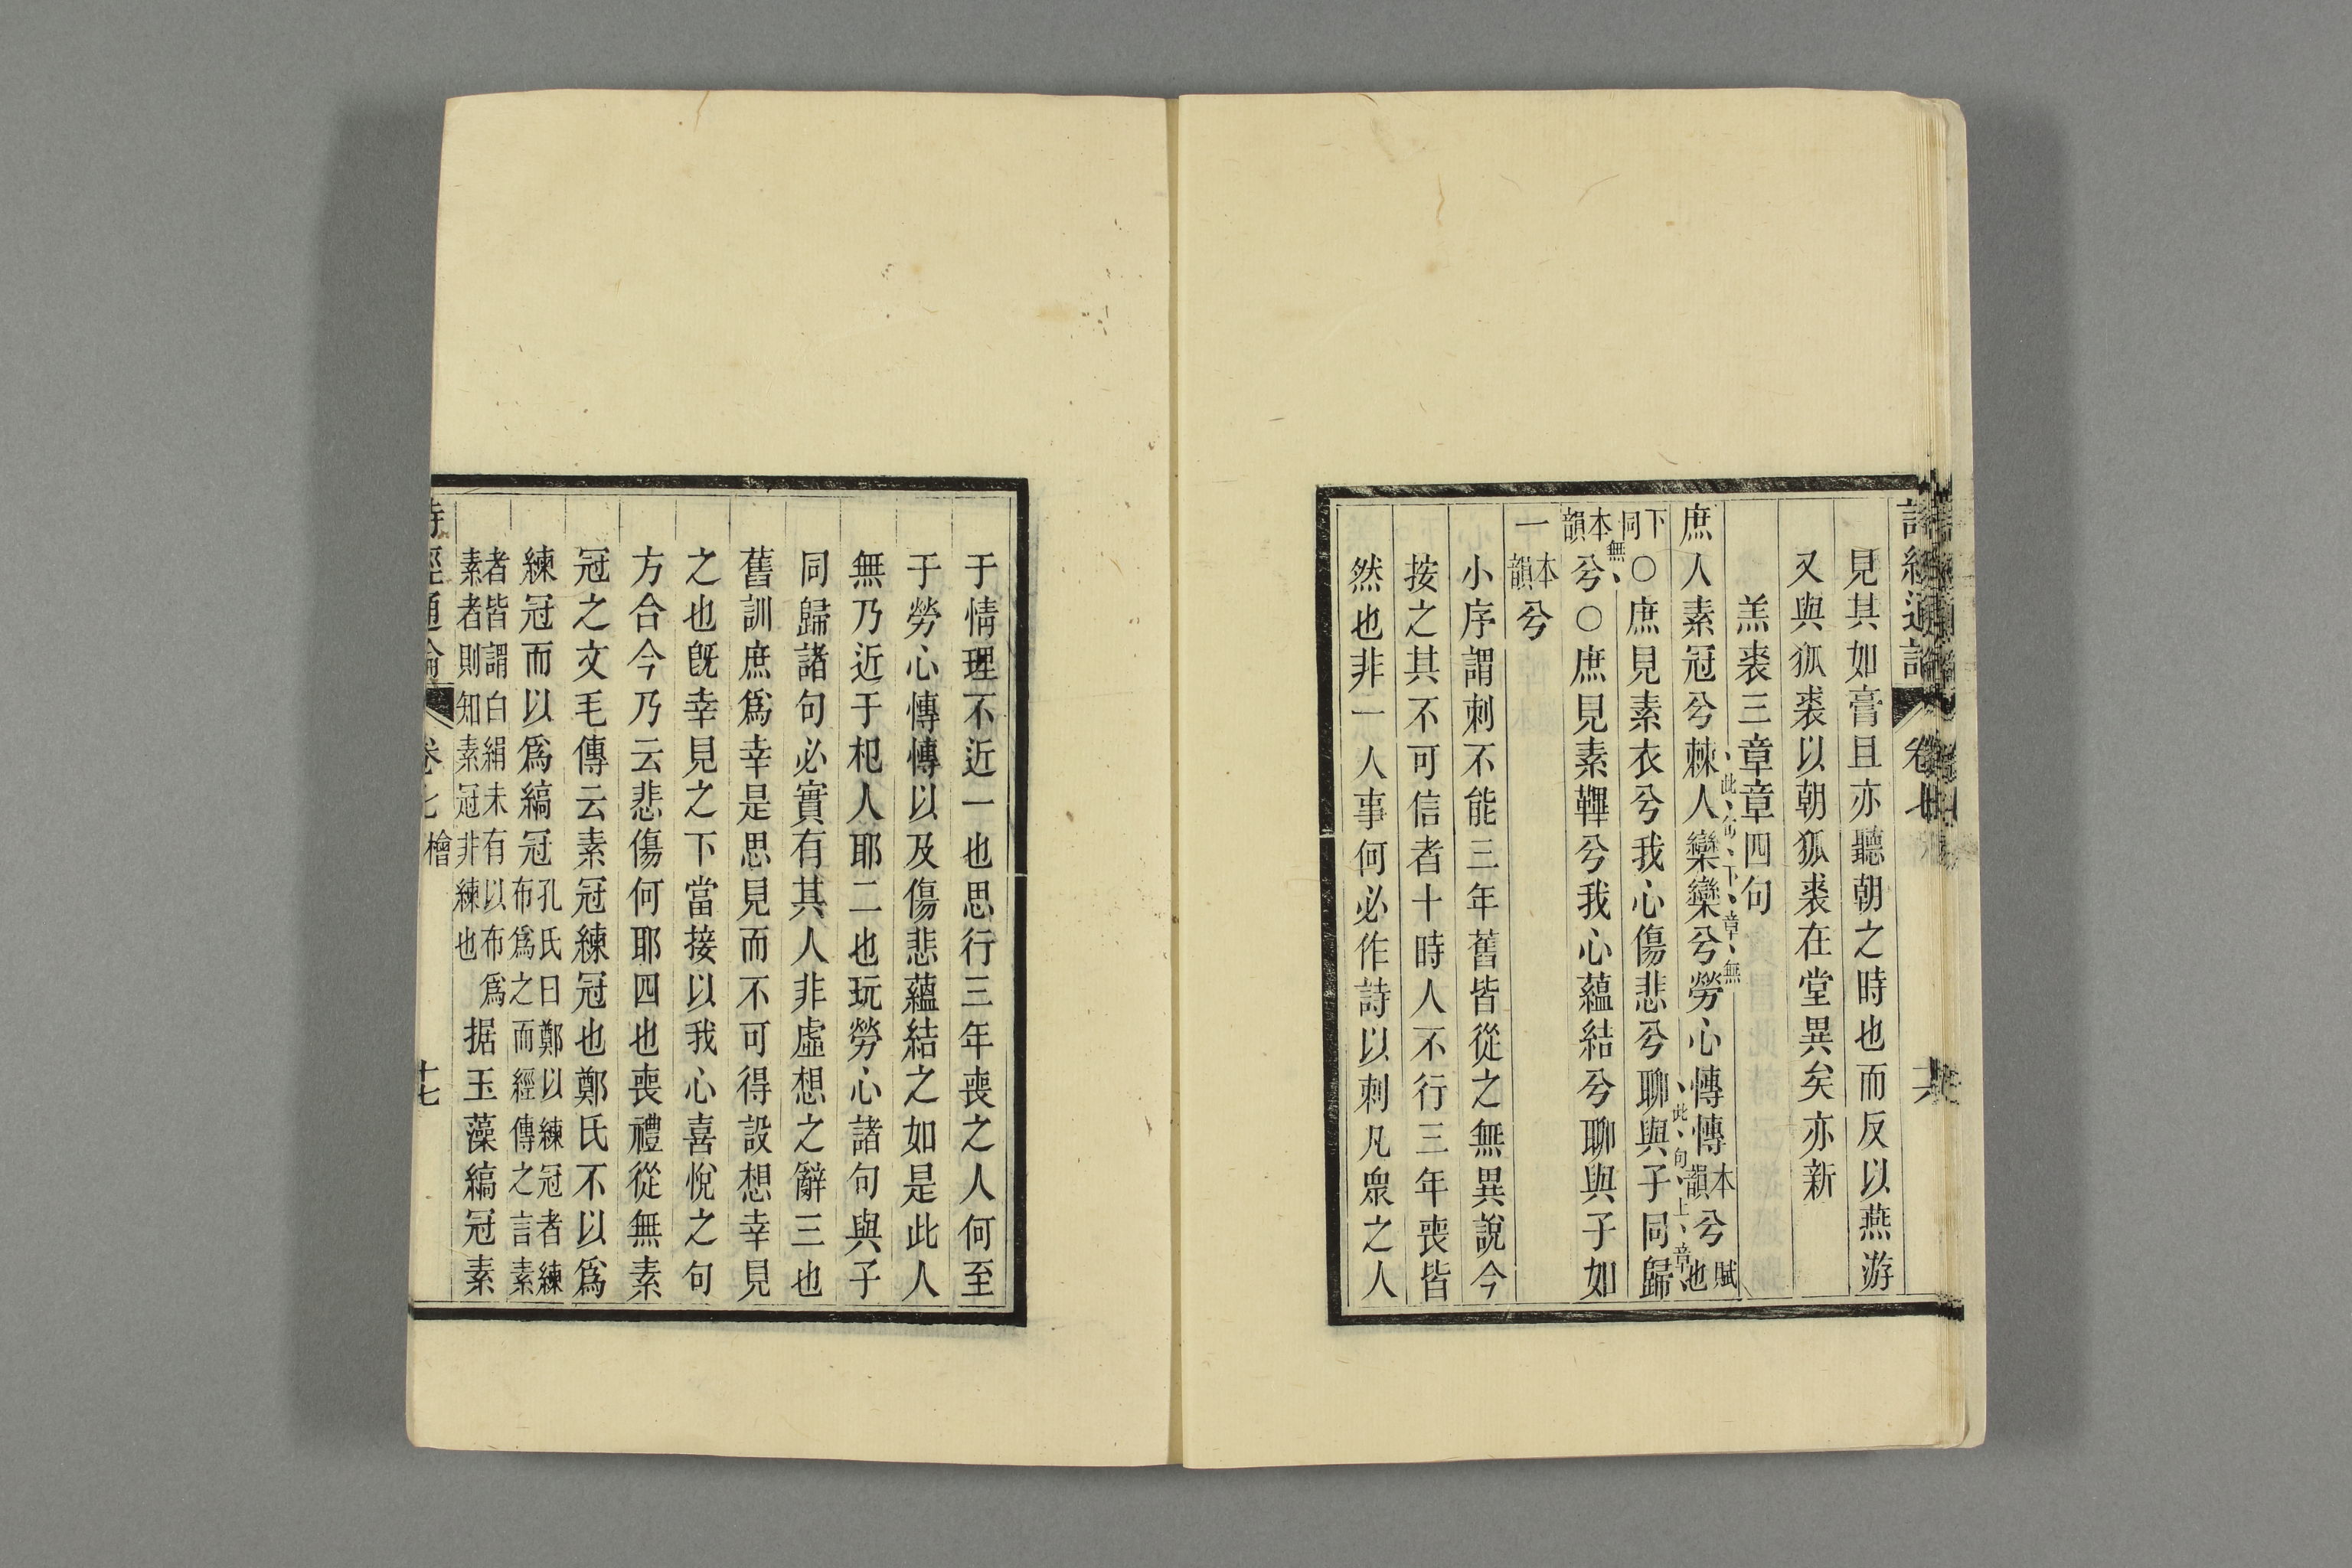 詩經通論 卷七 六
見其如膏且亦聽朝之時也而反以燕游
又與狐裘以朝狐裘在堂異矣亦新
羔裘三章章四句
庶人素冠兮棘人欒欒兮勞心慱慱本韻兮賦也
此句下章無
下同○庶見素衣兮我心傷悲兮聊與子同歸
此句上章無
本韻兮○庶見素韠兮我心蘊結兮聊與子如
一本韻兮
小序謂刺不能三年舊皆從之無異說今
按之其不可信者十時人不行三年喪皆
然也非一人事何必作詩以刺凡衆之人
于情理不近一也思行三年喪之人何至
于勞心慱慱以及傷悲蘊結之如是此人
無乃近于杞人耶二也玩勞心諸句與子
同歸諸句必實有其人非虛想之辭三也
舊訓庶爲幸是思見而不可得設想幸見
之也旣幸見之下當接以我心喜悅之句
方合今乃云悲傷何耶四也喪禮從無素
冠之文毛傳云素冠練冠也鄭氏不以爲
練冠而以爲縞冠孔氏曰鄭以練冠者練布爲之而經傳之言素
者皆謂白絹未有以布爲素者則知素冠非練也据玉藻縞冠素
詩經通論 卷七檜 十七